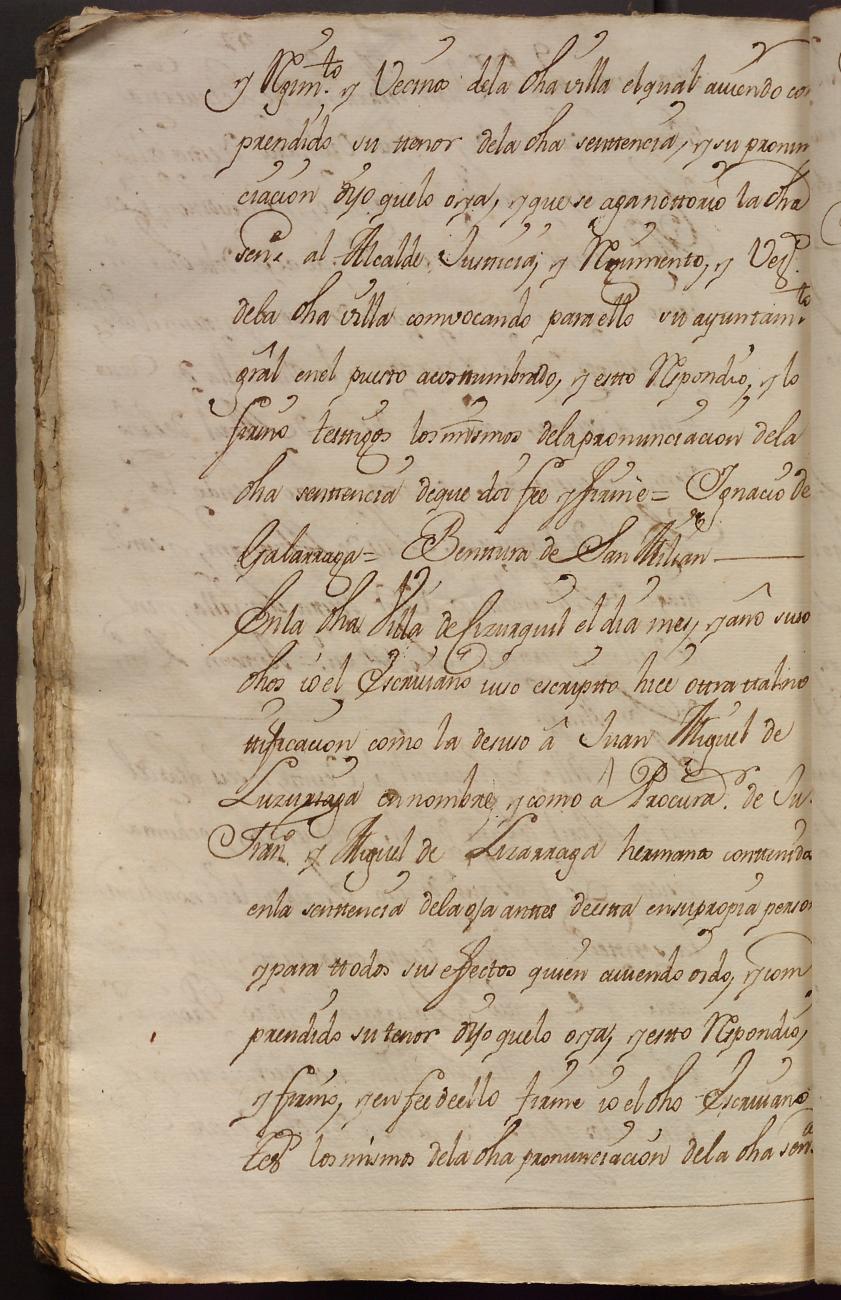 y Rgim.to y Vecinos dela dha villa el qual auiendo co
prendido su tenor dela dha senttencia, y su pronun
ciacion dijo que lo oya, y que se aga nottorio la dha
sen.a al Alcalde, Justticia, y Rejimiento, y Vez.s
dela dha villa comvocando para ello su ayuntam.to
grãl en el puesto acosttumbrado, y estto Respondio, y lo
firmo testtigos los mismos dela pronunciacion dela
dha senttencia de que doi fee y firme = Ignacio de
Galarraga = Benttura de San Milian
En la dha Villa de Lizurquil el dia mes, y año suso
dhos io el Escriuano iuso escriptto hice ottra ttal no
ttificacion como la desuso â Juan Miguel de
Luzurriaga en nombre, y como â Procura.r de Ju.
Fran.co y Miguel de Lizarraga hermanos conttenidos
en la senttencia dela oja anttes destta en su propia person
y para ttodos sus effectos quien auiendo oido, y com
prendido su tenor dijo que lo oya, y estto Respondio,
y firmo, y en fee de ello firme io el dho Escriuano
tes.os los mismos dela dha pronunciacion dela dha sen.a